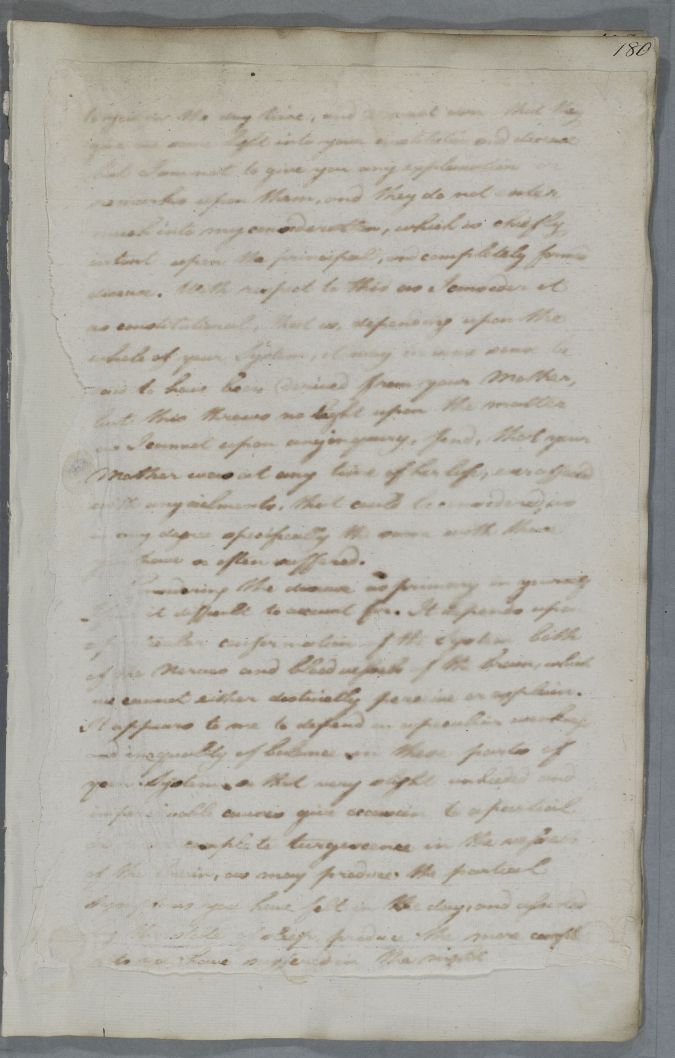 180
in the day time, and I must own that they
give me some light into your constitution and disease
but I am not to give you any explanation or
remarks upon them, and they do not enter
much into my consideration, which is chiefly
intent upon the principal, and completely formed
disease. With respect to this as I consider it
as constitutional, that is, depending upon the
whole of your System, it may in some sense be
said to have been derived from your Mother,
but this throws no light upon the matter
as I cannot upon any inquiry, find, that your
Mother was at any time of her life, ever affected
with any ailments, that could be considered, as
in any degree specifically the same with those
you have so often suffered.
Considering the disease as primary in yourself
I find it difficult to account for. It depends upon
a peculiar conformation of the System both
of the Nerves and bloodvessels of the brain, which
we cannot either distinctly perceive or explain.
It appears to me to depend on a peculiar weakness
and inequality of balance in these parts of
your System, so that very slight unheeded and
imperceivable causes give occasion to a partial
or more complete turgescence in the vessels
of the Brain, as may produce the partial
Symptoms you have felt in the day, and
the state of sleep, produce the more
you have suffered in the night